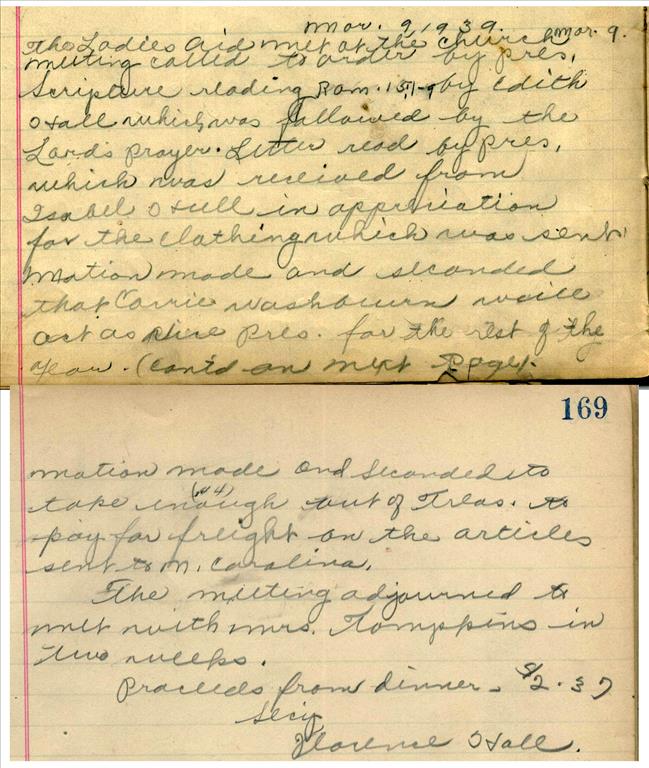 Mar. 9, 1939. Mar. 9.
The Ladies Aid met at the church
meeting called to order by pres.
Scripture reading Rom. 15, 1-9 by Edith
Hall which was followed by the
Lord's prayer. Letter read by pres.
which was received from
Isabel Hull in appreciation
for the clothing which was sent.
Motion made and seconded
that Carrie Washbourn will
act as vice Pres. for the rest of the
year. (cont'd on next Page).
169
Motion made and seconded to
take enough (.44) out of Treas. to
pay for freight on the articles
sent to N. Carolina.
The meeting adjourned to
met with Mrs. Tompkins in
two weeks.
Proceeds from dinner - $2.37
Sec'y
Florence Hall.